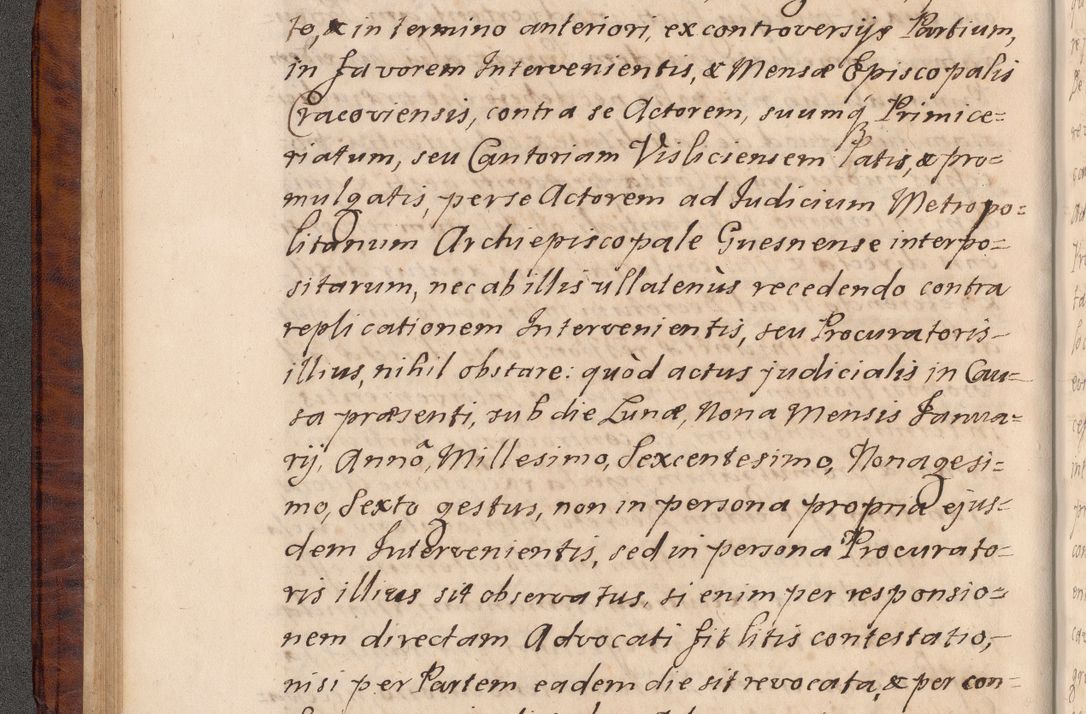 to, & in termino anteriori, ex controversijs Partium,
in favorem Intervenientis, & Mensæ Episcopalis
Cracoviensis, contra se Actorem, suumq́ Primice=
riatum, seu Cantoriam Visliciensem latis, & pro=
mulgatis, per se Actorem ad Iudicium Metropo=
litanum Archiepiscopale Gnesnense interpo=
sitarum, nec ab illis ullatenùs recedendo contra
replicationem Intervenientis, seu Procuratoris
illius, nihil obstare: quòd actus judicialis in Cau=
sa præsenti, sub die Lunæ, Nona Mensis Janua=
rij, Annō, Millesimo, Sexcentesimo, Nonagesi=
mo, Sexto gestus, non in persona propria ejus=
dem Intervenientis, sed in persona Procurato=
ris illius sit observatus, si enim per responsio=
nem directam Advocati fit litis contestatio,
nisi per Partem eadem die sit revocata, & per con=